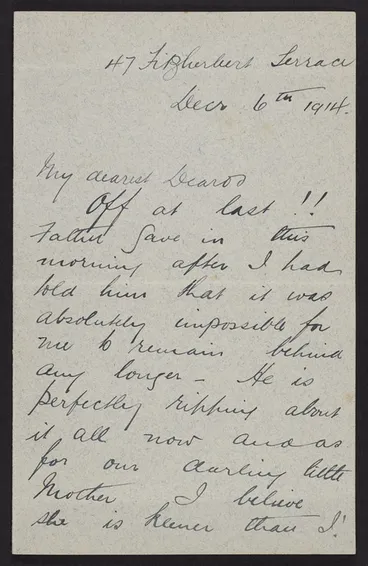 47 Fitzherbert Terrace
Decr 6th 1914.
My dearest Dears
Off at last !!
Father gave in this
morning after I had
told him that it was
absolutely impossible for
me to remain behind
any longer - He is
perfectly ripping about
it all now and as
for our darling little
Mother I believe
she is keener than I!